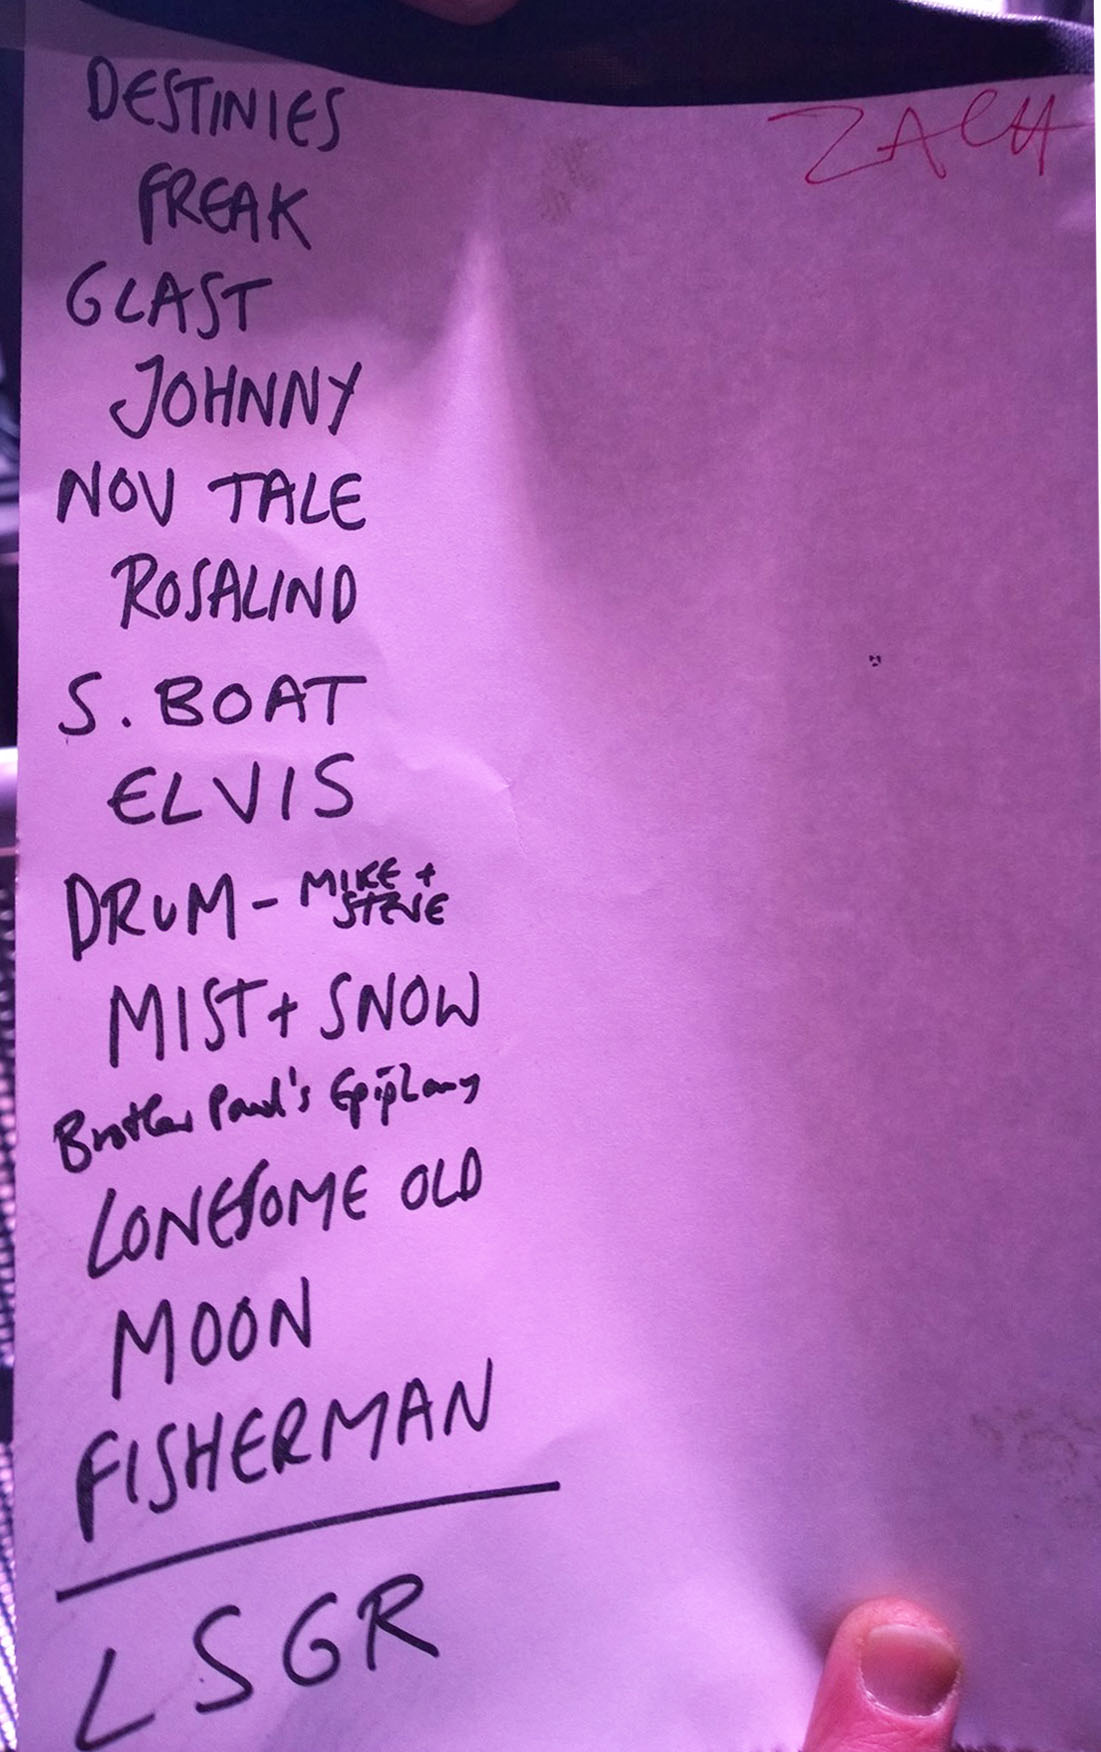 ZACH
DESTINIES
FREAK
GLAST
JOHNNY
NOV TALE
ROSALIND
S. BOAT
ELVIS
DRUM - MIKE +
STEVE
MIST + SNOW
Brother Paul's Epiphany
LONESOME OLD
MOON
FISHERMAN
LSGR